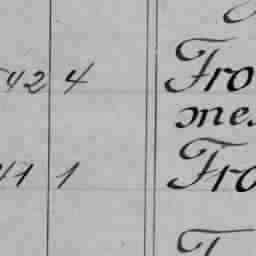 42 4 Fro
me
41 1 Fro